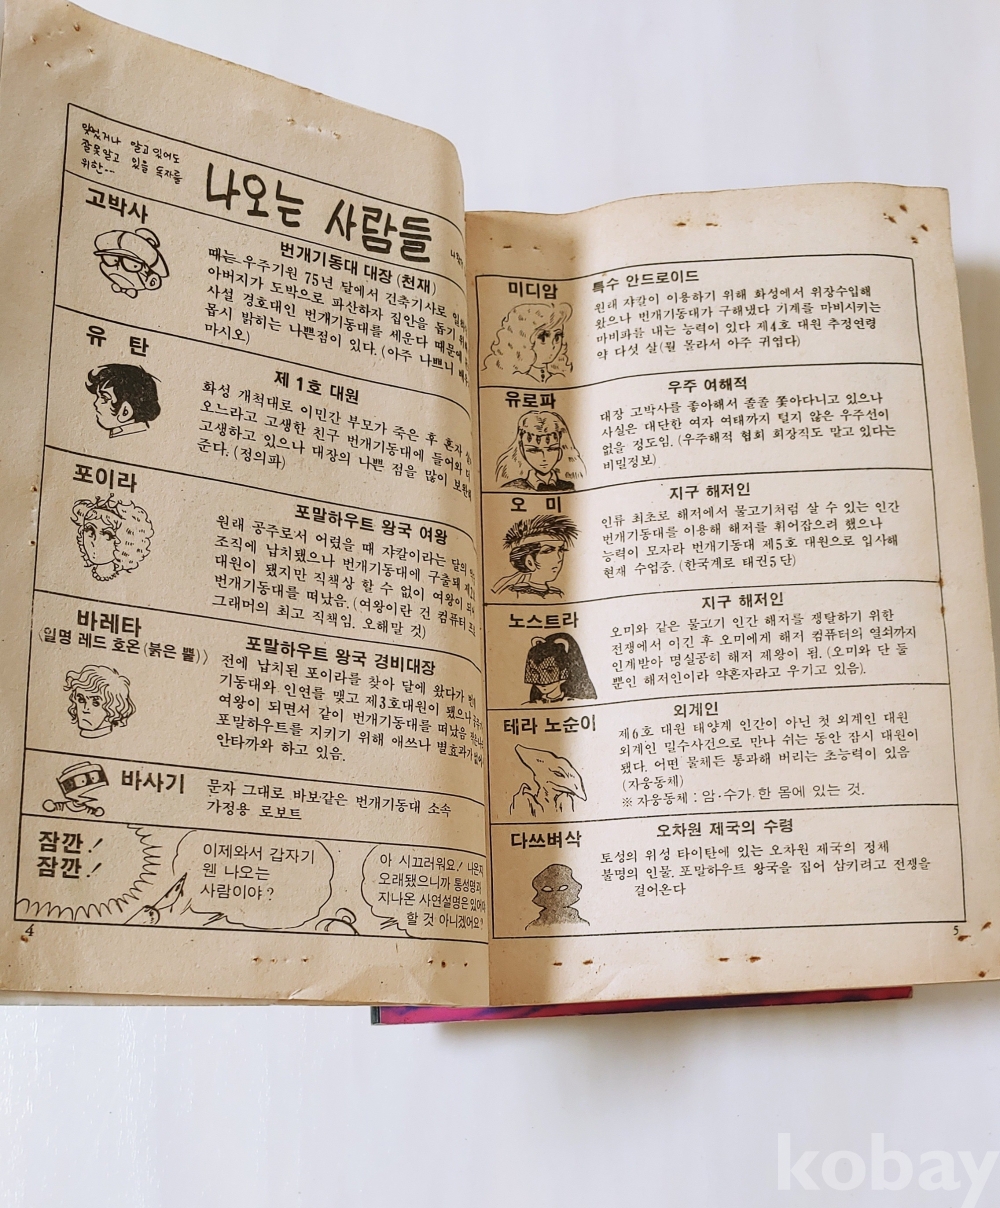 잊었거나 알고 있어도
잘못알고 있을 독자를
위한…
나오는 사람들
고박사
번개기동대 대장 (천재)
때는 우주기원 75년 달에서 건축기사로
아버지가 도박으로 파산하자 집안을 돕기
사설 경호대인 번개기동대를 세운다 때문에
몹시 밝히는 나쁜점이 있다. (아주 나쁘니
마시오)
유 탄
제 1호 대원
화성 개척대로 이민간 부모가 죽은 후 혼자
오느라고 고생한 친구 번개기동대에 들어와
고생하고 있으나 대장의 나쁜 점을 많이 보완해
준다. (정의파)
포이라
포말하우트 왕국 여왕
원래 공주로서 어렸을 때 쟈칼이라는 달의
조직에 납치됐으나 번개기동대에 구출돼
대원이 됐지만 직책상 할 수 없이 여왕이
번개기동대를 떠났음. (여왕이란 건 컴퓨터
그래머의 최고 직책임. 오해말 것)
바레타
(일명 레드 호온 (붉은 뿔))
포말하우트 왕국 경비대장
전에 납치된 포이라를 찾아 달에 왔다가
기동대와 인연을 맺고 제3호대원이 됐으나
여왕이 되면서 같이 번개기동대를 떠났음
포말하우트를 지키기 위해 애쓰나 별효과가 없어
안타까와 하고 있음.
바사기
문자 그대로 바보같은 번개기동대 소속
가정용 로보트
잠깐!
잠깐!
이제와서 갑자기
웬 나오는
사람이야?
아 시끄러워요! 나온지
오래됐으니까 통성명과
지나온 사연설명은 있어야
할 것 아니겠어요?
4
미디암
특수 안드로이드
원래 쟈칼이 이용하기 위해 화성에서 위장수입해
왔으나 번개기동대가 구해냈다 기계를 마비시키는
마비파를 내는 능력이 있다 제4호 대원 추정연령
약 다섯 살(뭘 몰라서 아주 귀엽다)
유로파
우주 여해적
대장 고박사를 좋아해서 졸졸 쫓아다니고 있으나
사실은 대단한 여자 여태까지 털지 않은 우주선이
없을 정도임. (우주해적 협회 회장직도 맡고 있다는
비밀정보)
오 미
지구 해저인
인류 최초로 해저에서 물고기처럼 살 수 있는 인간
번개기동대를 이용해 해저를 휘어잡으려 했으나
능력이 모자라 번개기동대 제5호 대원으로 입사해
현재 수업중. (한국계로 태권5단)
노스트라
지구 해저인
오미와 같은 물고기 인간 해저를 쟁탈하기 위한
전쟁에서 이긴 후 오미에게 해저 컴퓨터의 열쇠까지
인계받아 명실공히 해저 제왕이 됨. (오미와 단 둘
뿐인 해저인이라 약혼자라고 우기고 있음).
테라 노순이
외계인
제6호 대원 태양계 인간이 아닌 첫 외계인 대원
외계인 밀수사건으로 만나 쉬는 동안 잠시 대원이
됐다. 어떤 물체든 통과해 버리는 초능력이 있음
(자웅동체)
※ 자웅동체 : 암·수가 한 몸에 있는 것.
다쓰벼삭
오차원 제국의 수령
토성의 위성 타이탄에 있는 오차원 제국의 정체
불명의 인물. 포말하우트 왕국을 집어 삼키려고 전쟁을
걸어온다
5
kobay